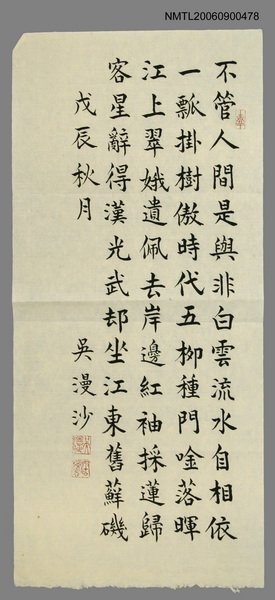 NMTL20060900478
不管人間是與非白雲流水自相依
一瓢掛樹傲時代五柳種門唫落暉
江上翠娥遺佩去岸邊紅袖採蓮歸
客星辭得漢光武却坐江東舊蘚磯
戊辰秋月
吳漫沙